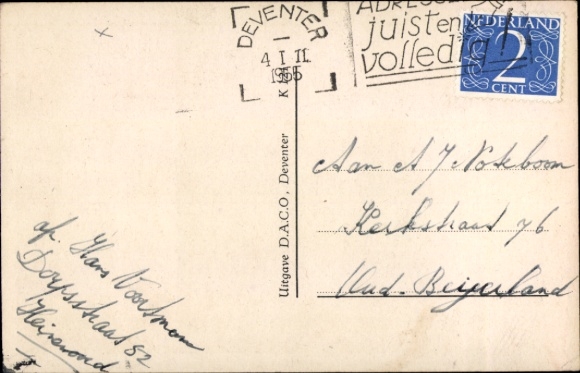 DEVENTER
ADRESSEER
juist en
volledig!
NEDERLAND
2
CENT
Uitgave D.A.C.O., Deventer
Aan A J. Noteboom
Kerkstraat 76
Oud-Beijerland
af. Hans Voortman
Dorpsstraat 52